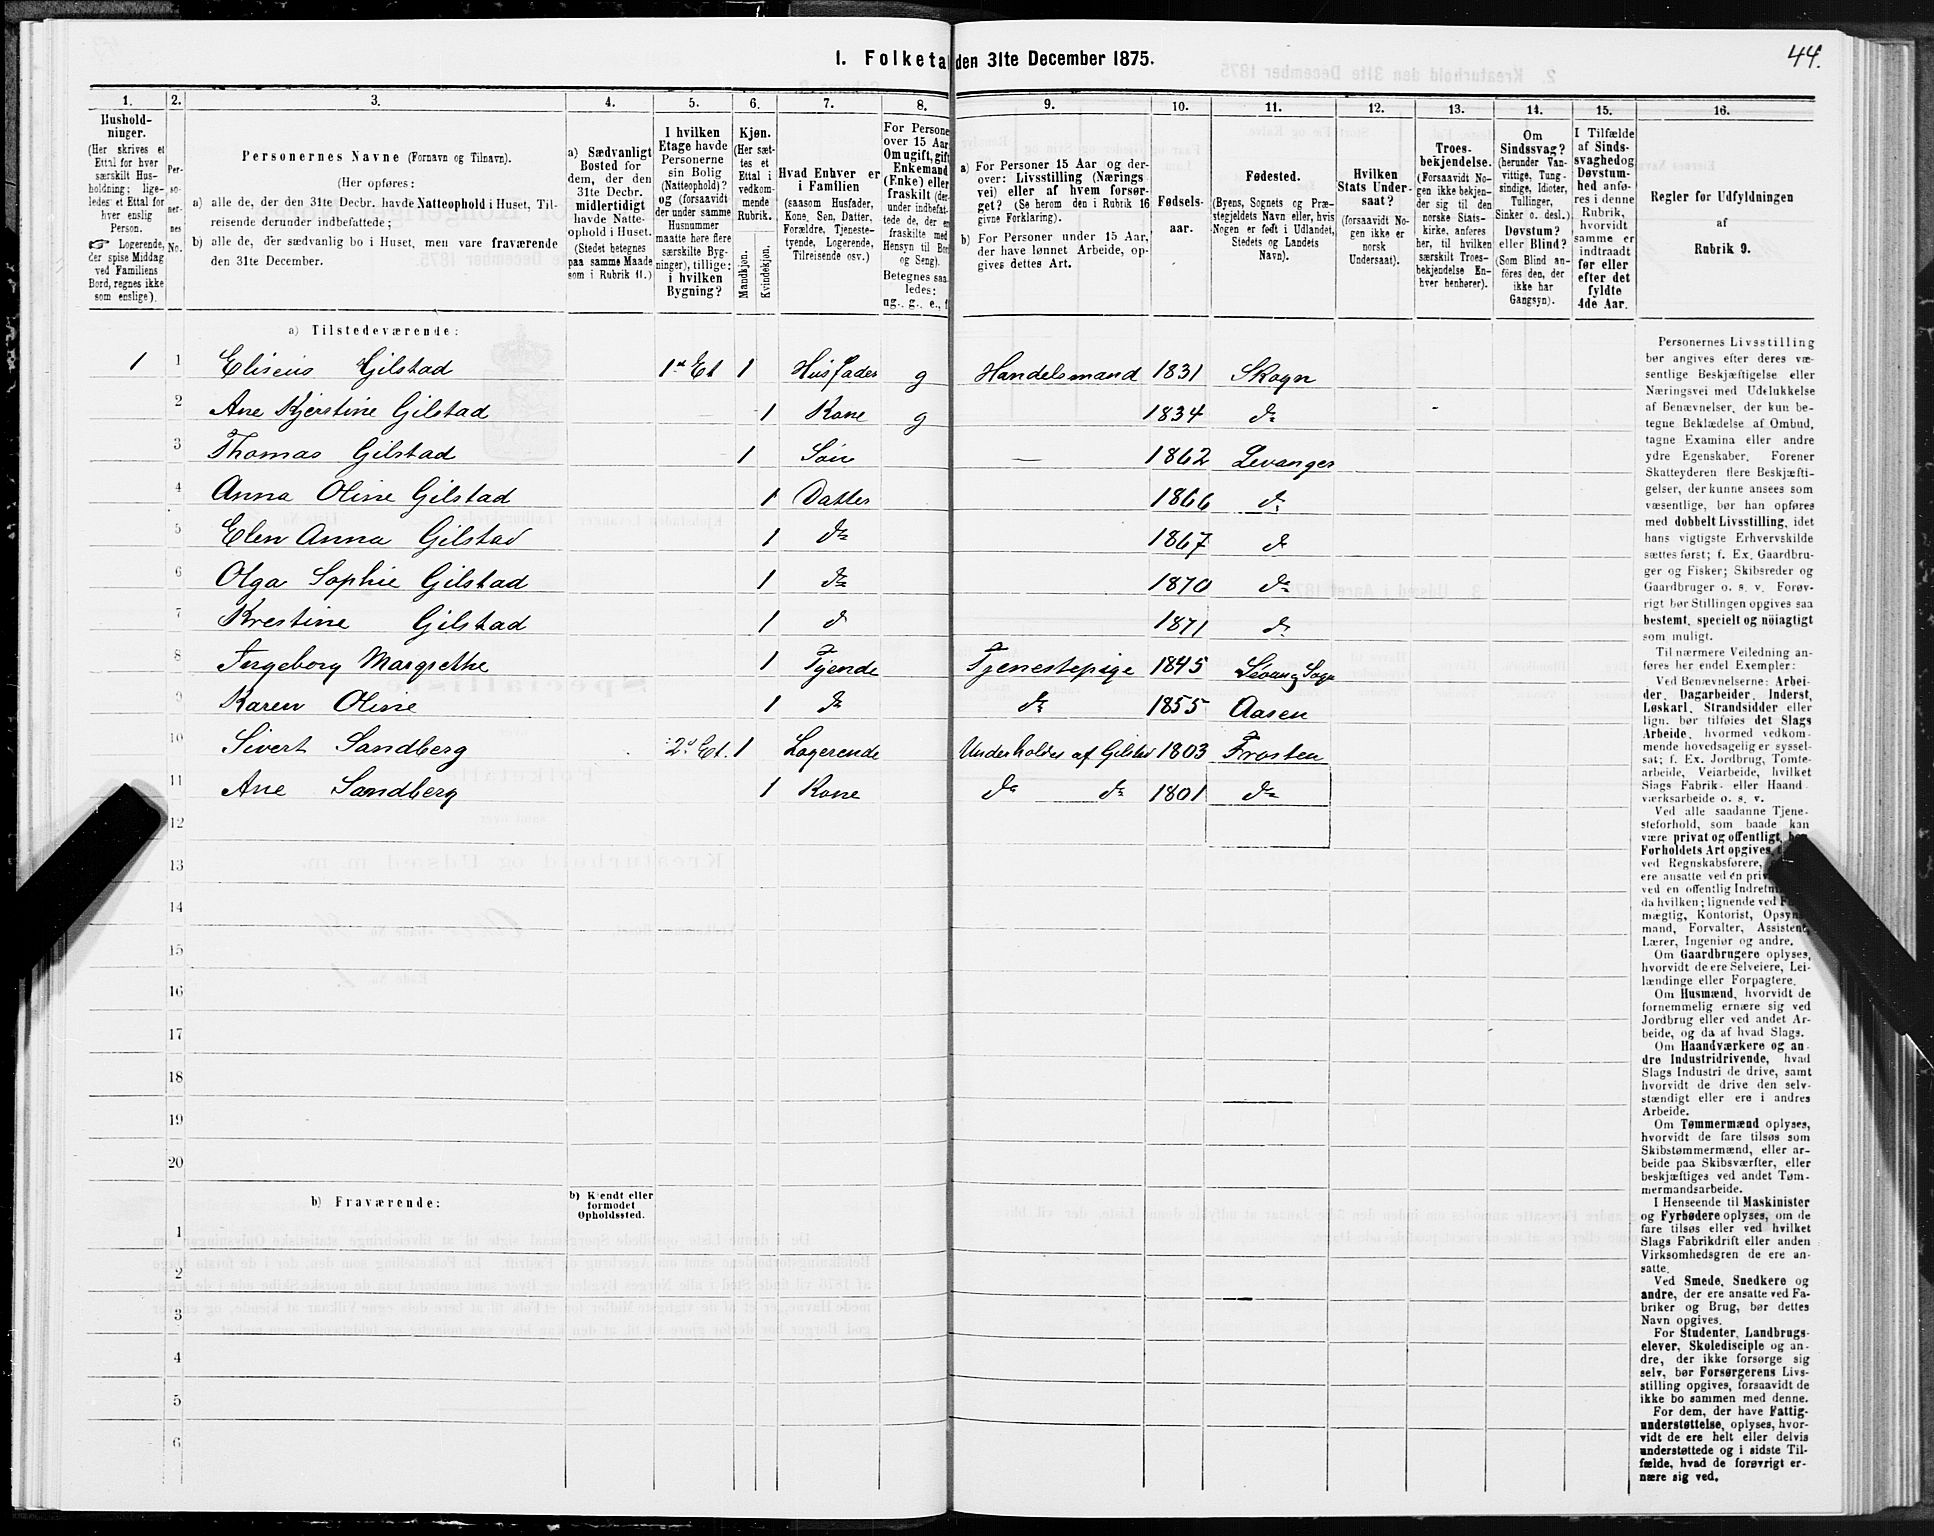 44.
I. Folketal den 31te December 1875.
1. 2. 3. 4. 5. 6. 7. 8. 9. 10. 11. 12. 13. 14. 15. 16.
Hushold-
ninger.
(Her skrives et
Ettal for hver
særskilt Hus-
holdning; lige-
ledes et Ettal for
hver enslig
Person.
☞ Logerende,
der spise Middag
ved Familiens
Bord, regnes ikke
som enslige).
Per-
so-
ner-
nes
No.
Personernes Navne (Fornavn og Tilnavn).
(Her opføres:
a) alle de, der den 31te Decbr. havde Natteophold i Huset, Til-
reisende derunder indbefattede;
b) alle de, der sædvanlig bo i Huset, men vare fraværende
den 31te December.
a) Sædvanligt
Bosted for
dem, der den
31te Decbr.
midlertidigt
havde Natte-
ophold i Huset.
(Stedet betegnes
paa samme Maade
som i Rubrik 11.)
I hvilken
Etage havde
Personerne
sin Bolig
(Natteophold)?
og (forsaavidt
der under samme
Husnummer
maatte høre flere
særskilte Byg-
ninger), tillige:
i hvilken
Bygning?
Kjøn.
(Her sæt-
tes et
Ettal i
vedkom-
mende
Rubrik.
Mandkjøn.
Kvindekjøn.
Hvad Enhver er
i Familien
(saasom Husfader,
Kone, Søn, Datter,
Forældre, Tjeneste-
tyende, Logerende,
Tilreisende osv.)
For Persone
over 15 Aar
Om ugift, gift
Enkemand
(Enke) eller
fraskilt (der-
under indbefat-
tede de, der er
fraskilte med
Hensyn til Bor
og Seng).
Betegnes saa-
ledes:
ug., g., e., f
a) For Personer 15 Aar og der-
over: Livsstilling (Nærings
vei) eller af hvem forsør-
get? (Se herom den i Rubrik 16
givne Forklaring).
b) For Personer under 15 Aar,
der have lønnet Arbeide, op-
gives dettes Art.
Fødsels-
aar.
Fødested.
(Byens, Sognets og Præ-
stegjeldets Navn eller, hvis
Nogen er født i Udlandet,
Stedets og Landets
Navn).
Hvilken
Stats Under-
saat?
(forsaavidt No-
gen ikke er
norsk
Undersaat).
Troes-
bekjendelse.
(Forsaavidt No-
gen ikke bekjen-
der sig til den
norske Stats-
kirke, anføres
her, til hvilken
særskilt Troes-
bekjendelse En-
hver henhører).
Om
Sindssvag?
(herunder Van-
vittige, Tung-
sindige, Idioter,
Tullinger,
Sinker o. desl.)
Døvstum?
eller Blind?
(Som Blind an-
føres den, der
ikke har
Gangsyn).
I Tilfælde
af Sinds-
svaghed og
Døvstum-
hed anfø-
res i denne
Rubrik,
hvorvidt
samme er
indtraadt
før eller
efter det
fyldte
4de Aar.
Regler for Udfyldningen
af
Rubrik 9.
a) Tilstedeværende:
1 1 Eliseus Gilstad 1st Et 1 Husfader g Handelsmand 1831 Skogn
2 Ane Kjerstine Gilstad 1 Kone g 1834 do
3 Thomas Gilstad 1 Søn — 1862 Levanger
4 Anna Oline Gilstad 1 Datter 1866 do
5 Elen Anna Gilstad 1 do 1867 do
6 Olga Sophie Gilstad 1 do 1870 do
7 Krestine Gilstad 1 do 1871 do
8 Ingeborg Margrethe 1 Tyende Tjenestepige 1845 Levang Sogn
9 Karen Oline 1 do do 1855 Aasen
10 Sivert Sandberg 2d Et. 1 Logerende Underholdes af Gilstad 1803 Frosten
11 Ane Sandberg 1 Kone do do 1801 do
12
13
14
15
16
17
18
19
20
b) Fraværende:
b) Kjendt eller
formodet
Opholdssted.
1
2
3
4
5
6
Personernes Livsstilling
bør angives efter deres væ-
sentlige Beskjæftigelse eller
Næringsvei med Udelukkelse
af Benævnelser, der kun be-
tegne Beklædelse af Ombud,
tagne Examina eller andre
ydre Egenskaber. Forener
Skatteyderen flere Beskjæfti-
gelser, der kunne ansees som
væsentlige, bør han opføres
med dobbelt Livsstilling, idet
hans vigtigste Erhvervskilde
sættes først; f. Ex. Gaardbru-
ger og Fisker; Skibsreder og
Gaardbruger o. s. v. Forøv-
rigt bør Stillingen opgives saa
bestemt, specielt og nöiagtigt
som muligt.
Til nærmere Veiledning an-
føres her endel Exempler:
Ved Benævnelserne: Arbei-
der, Dagarbeider, Inderst,
Løskarl, Strandsidder eller
lign. bør tilføies det Slags
Arbeide, hvormed vedkom-
mende hovedsagelig er syssel-
sat; f. Ex. Jordbrug, Tomte-
arbeide, Veiarbeide, hvilket
Slags Fabrik- eller Haand
værksarbeide o. s. v.
Ved alle saadanne Tjene-
steforhold, som baade kan
være privat og offentligt, bør
Forholdets Art opgives,
ved Regnskabsførere,
ere ansatte ved en
ved en offentlig
da hvilken; lignende ved
mægtig, Kontorist,
mand, Forvalter, Assistent,
Lærer, Ingeniør og andre.
Om Gaardbrugere oplyses,
hvorvidt de ere Selveiere, Lei-
lændinge eller Forpagtere.
Om Husmænd, hvorvidt de
fornemmelig ernære sig ved
Jordbrug eller ved andet Ar-
beide, og da af hvad Slags.
Om Haandværkere og an-
dre Industridrivende, hvad
Slags Industri de drive, samt
hvorvidt de drive den selv-
stændigt eller ere i andres
Arbeide.
Om Tømmermænd oplyses,
hvorvidt de fare tilsøs som
Skibstømmermænd, eller ar-
beide paa Skibsværfter, eller
beskjæftiges ved andet Tøm-
mermandsarbeide.
I Henseende til Maskinister
og Fyrbødere oplyses, om de
fare tilsøs eller ved hvilket
Slags Fabrikdrift eller anden
Virksomhedsgren de ere an-
satte.
Ved Smede, Snedkere og
andre, der ere ansatte ved Fa-
briker og Brug, bør dettes
Navn opgives.
For Studenter, Landbrugs-
elever, Skoledisciple og an-
dre, der ikke forsørge sig
selv, bør Forsørgerens Livs-
stilling opgives, forsaavidt de
ikke bo sammen med denne.
For dem, der have Fattig-
understøttelse, oplyses, hvor-
vidt de ere helt eller delvis
understøttede og i sidste Til-
fælde, hvad de forøvrigt er-
nære sig ved.